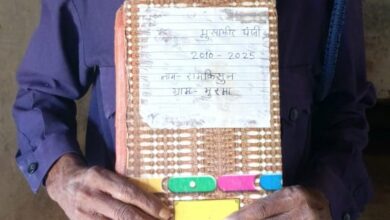 मुसाफिर पंजी
2010 - 2025
नाम - रामकिसुन
ग्राम - मुरमा